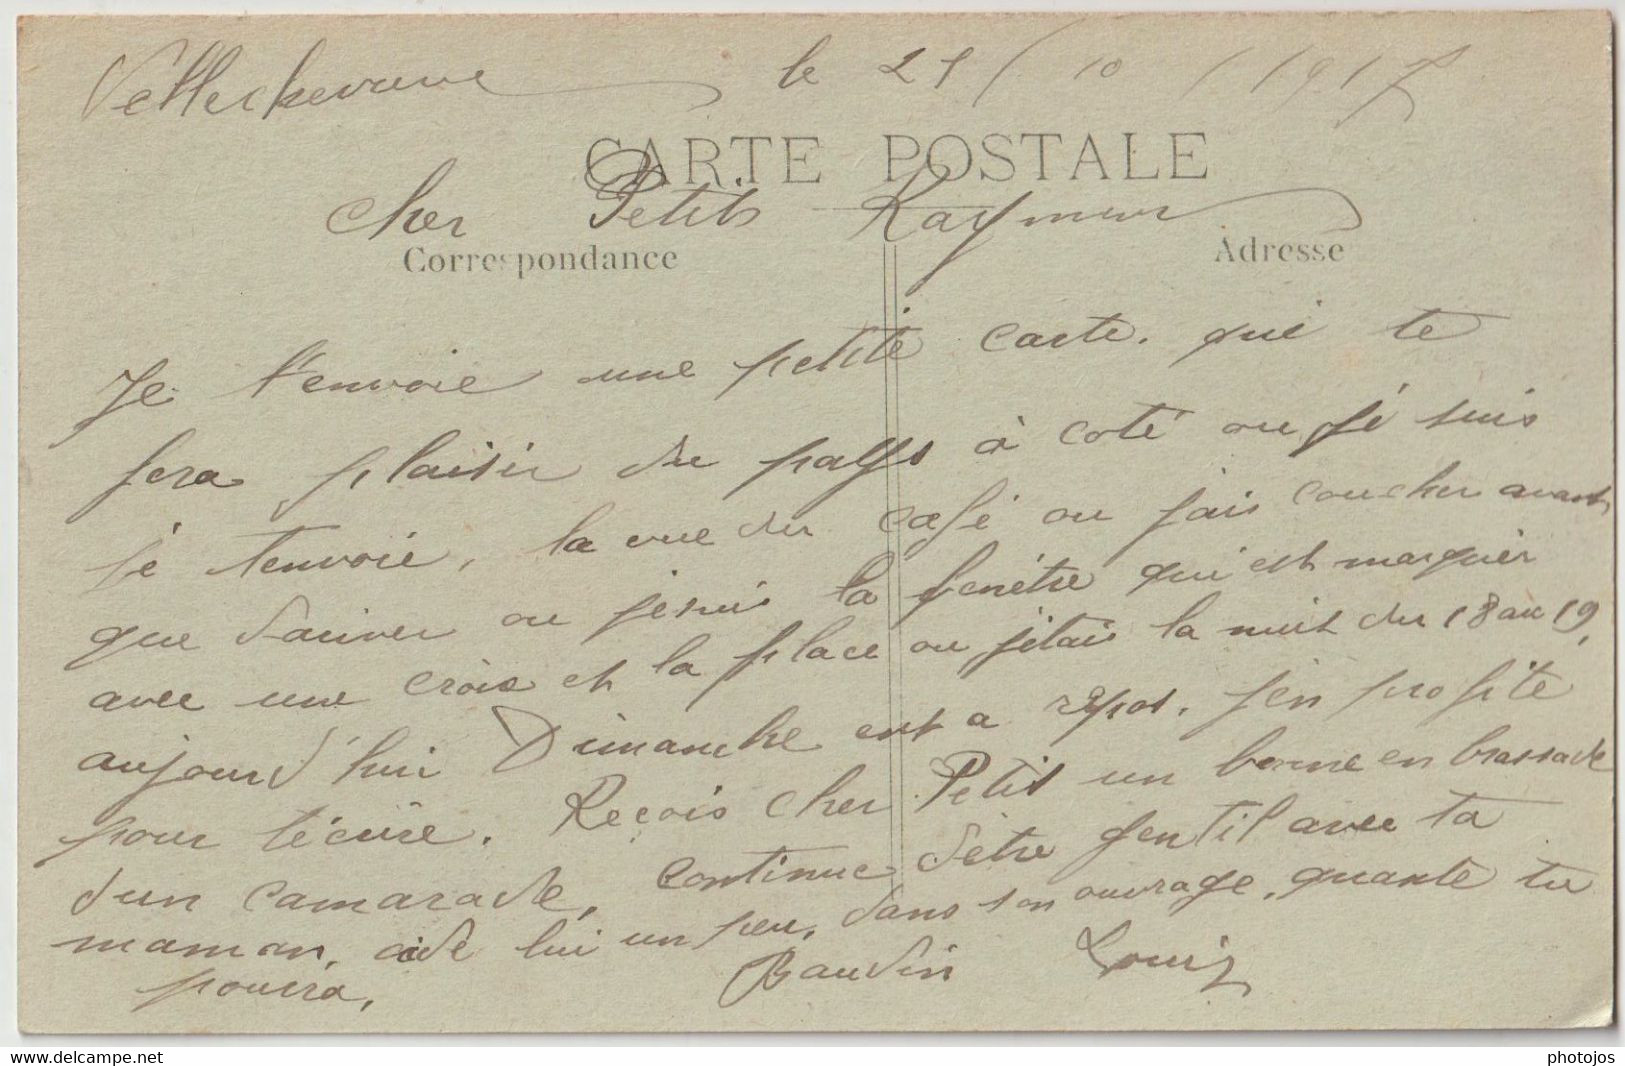 Vellechevreux le 21 / 10 / 1917
CARTE POSTALE
Cher Petits Raymon
Correspondance Adresse
Je t'envoie une petite carte. qui te
fera plaisir du pallfs à coté ou jé suis
jé tenvoie, la vue du café ou jais coucher avant
que dariver ou jesuis la fenétre qui est marquér
avec une croix et la place ou jétais la nuit du 18 au 19,
aujourd'hui Dimanche ont a repos. jén profite
pour técrire. Reçois cher Petit un bonne en brassade
dun camarade, continue détre gentil avec ta
maman, aide lui un peu, dans son ouvrage, quante tu
pourra, Baudin Louis
delcampe.net
photojos